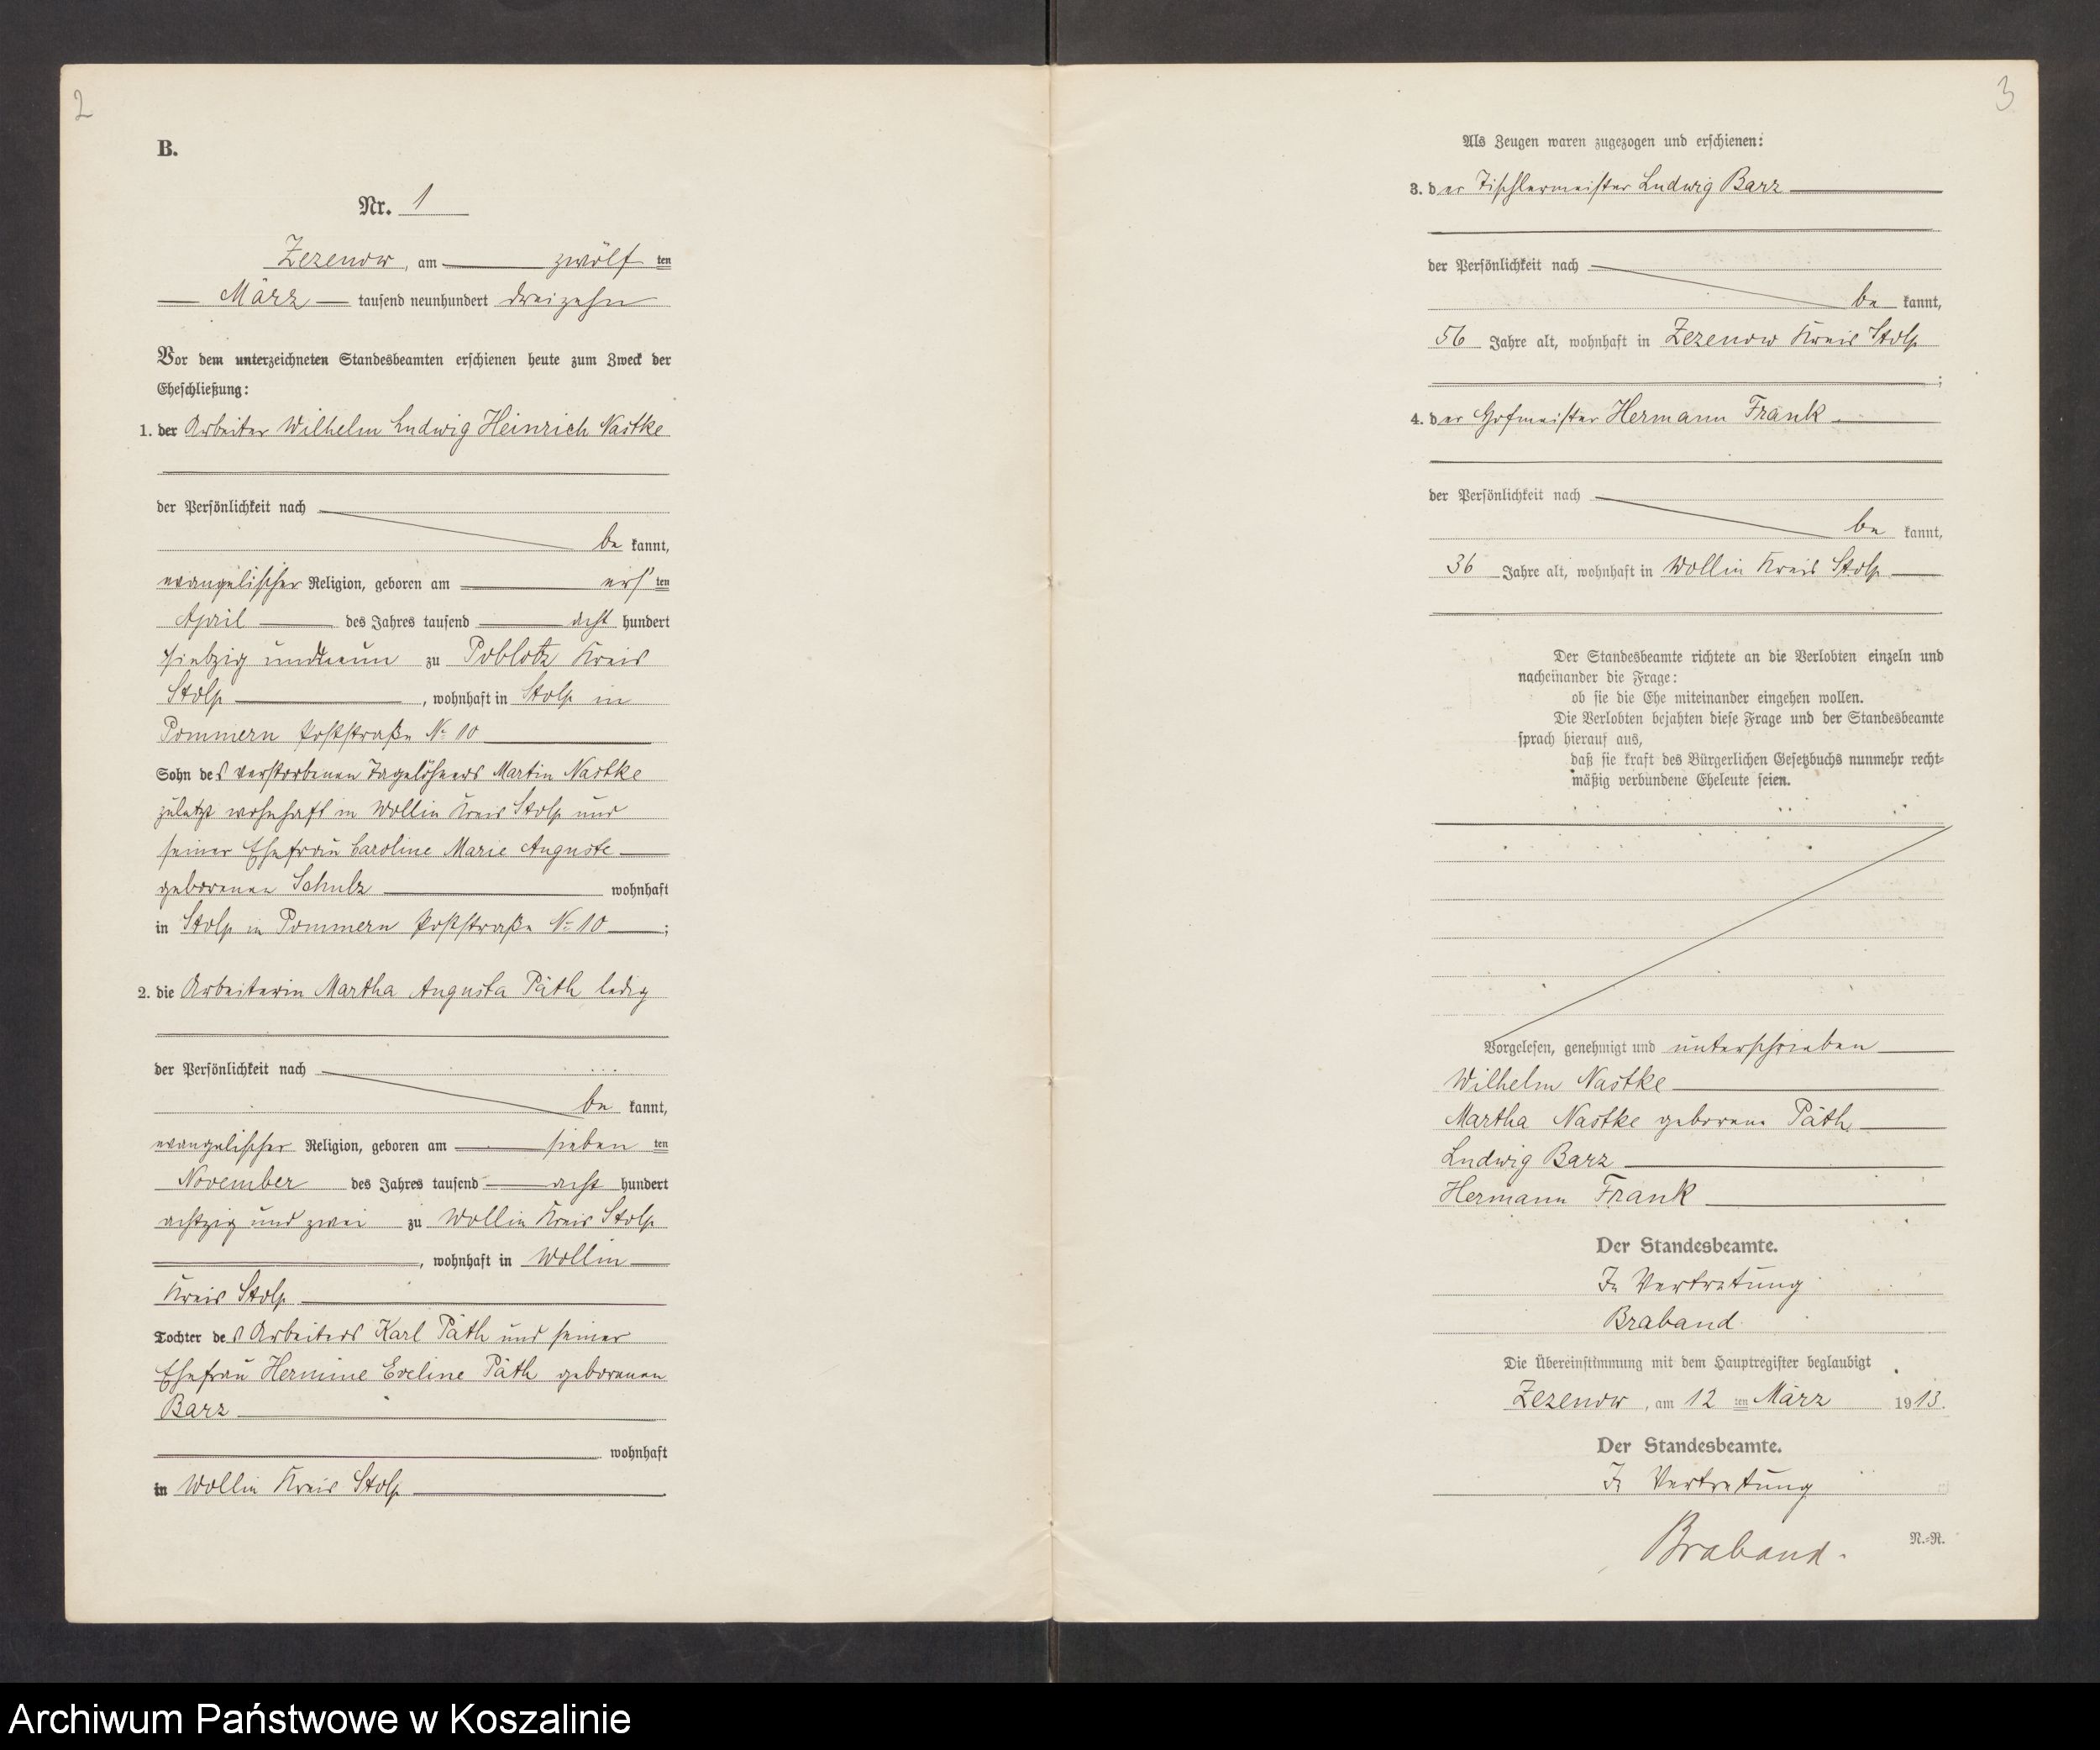 2
B.
Nr. 1
Zezenow, am zwölf ten
März tausend neunhundert dreizehn
Vor dem unterzeichneten Standesbeamten erschienen heute zum Zweck der
Eheschließung:
1. der Arbeiter Wilhelm Ludwig Heinrich Nastke
der Persönlichkeit nach
be kannt,
evangelischer Religion, geboren am ers ten
April des Jahres tausend acht hundert
siebzig und neun zu Poblotz Kreis
Stolp, wohnhaft in Stolp in
Pommern Poststraße No 10
Sohn des verstorbenen Tagelöhners Martin Nastke
zuletzt wohnhaft in Wollin Kreis Stolp und
seiner Ehefrau Caroline Marie Auguste
geborenen Schulz wohnhaft
in Stolp in Pommern Poststraße No 10;
2. die Arbeiterin Martha Augusta Päth ledig
der Persönlichkeit nach
be kannt,
evangelischer Religion, geboren am sieben ten
November des Jahres tausend acht hundert
achtzig und zwei zu Wollin Kreis Stolp
, wohnhaft in Wollin
Kreis Stolp
Tochter des Arbeiters Karl Päth und seiner
Ehefrau Hermine Eveline Päth geborenen
Barz
wohnhaft
in Wollin Kreis Stolp
3
Als Zeugen waren zugezogen und erschienen:
3. der Tischlermeister Ludwig Barz
der Persönlichkeit nach
be kannt,
56 Jahre alt, wohnhaft in Zezenow Kreis Stolp
;
4. der Hofmeister Hermann Frank
der Persönlichkeit nach
be kannt,
36 Jahre alt, wohnhaft in Wollin Kreis Stolp
Der Standesbeamte richtete an die Verlobten einzeln und
nacheinander die Frage:
ob sie die Ehe miteinander eingehen wollen.
Die Verlobten bejahten diese Frage und der Standesbeamte
sprach hierauf aus,
daß sie kraft des Bürgerlichen Gesetzbuchs nunmehr recht-
mäßig verbundene Eheleute seien.
Vorgelesen, genehmigt und unterschrieben
Wilhelm Nastke
Martha Nastke geborene Päth
Ludwig Barz
Hermann Frank
Der Standesbeamte.
In Vertretung
Braband
Die Übereinstimmung mit dem Hauptregister beglaubigt
Zezenow, am 12 ten März 1913.
Der Standesbeamte.
In Vertretung
Braband.
N.-R.
Archiwum Państwowe w Koszalinie